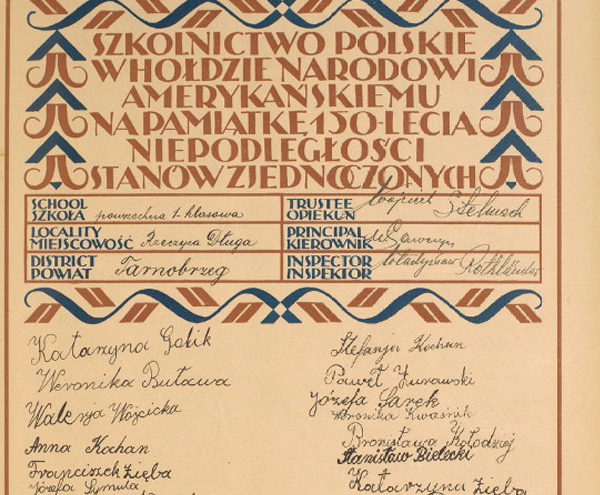 SZKOLNICTWO POLSKIE
W HOŁDZIE NARODOWI
AMERYKAŃSKIEMU
NA PAMIĄTKĘ 150-LECIA
NIEPODLEGŁOŚCI
STANÓW ZJEDNOCZONYCH
SCHOOL
SZKOŁA powszechna 1-klasowa
TRUSTEE
OPIEKUN Wojciech Stelmach
LOCALITY
MIEJSCOWOŚĆ Rzeczyca Długa
PRINCIPAL
KIEROWNIK
DISTRICT
POWIAT Tarnobrzeg
INSPECTOR
INSPEKTOR Władysław Rothländer
Katarzyna Golik
Weronika Butawa
Walerja Wojcicka
Anna Kochan
Franciszek Zięba
Józefa Szmula
Stefanja Kochan
Paweł Żurawski
Józefa Sarek
Weronika Kwaśnik
Bronisława Kołodziej
Stanisław Bielecki
Katarzyna Zięba